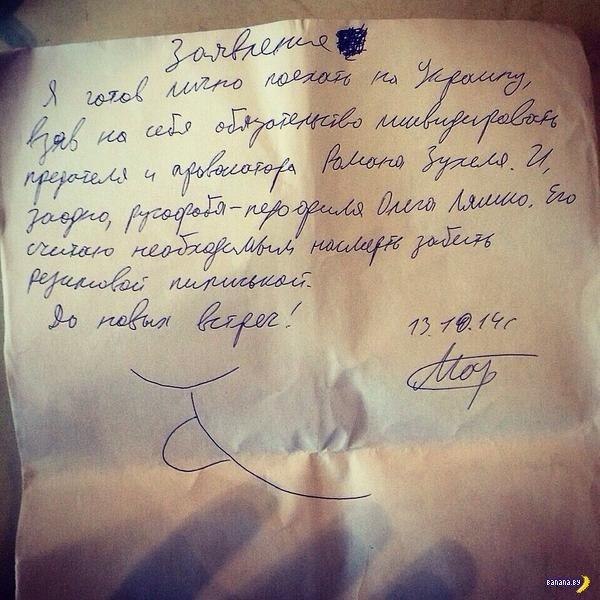 Заявление
Я готов лично поехать на Украину,
взяв на себя обязательство ликвидировать
предателя и провокатора Романа Зухеля. И,
заодно, русофоба-педофила Олега Ляшко. Его
считаю необходимым насмерть забить
резиновой пиписькой.
До новых встреч!
13.10.14г
Мор
BANANA.BY